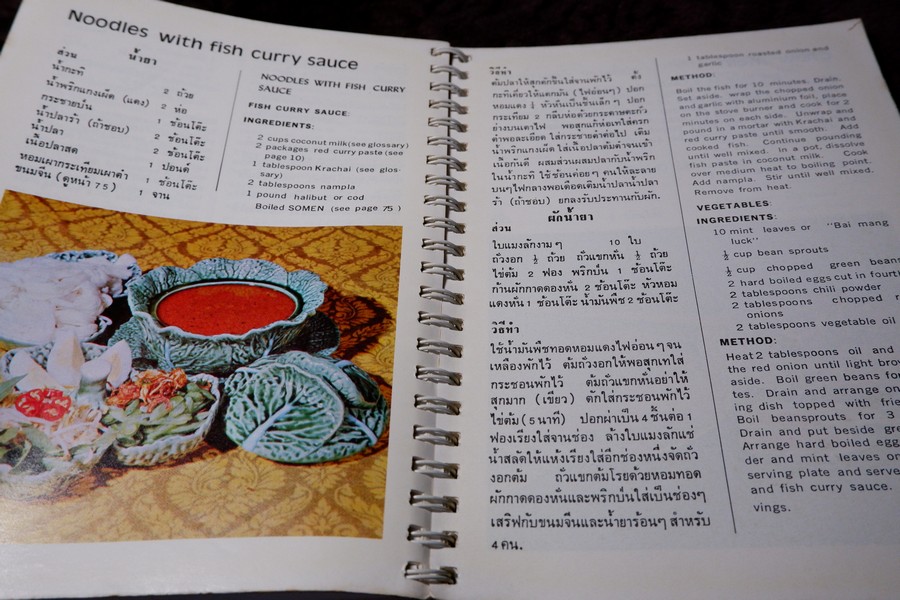 Noodles with fish curry sauce
น้ำยา
ส่วน
น้ำกะทิ 2 ถ้วย
น้ำพริกแกงเผ็ด (แดง) 2 ห่อ
กระชายป่น 1 ช้อนโต๊ะ
น้ำปลาร้า (ถ้าชอบ) 2 ช้อนโต๊ะ
น้ำปลา 2 ช้อนโต๊ะ
เนื้อปลาสด 1 ปอนด์
หอมเผากระเทียมเผาตำ 1 ช้อนโต๊ะ
ขนมจีน (ดูหน้า 75) 1 จาน
NOODLES WITH FISH CURRY
SAUCE
FISH CURRY SAUCE
INGREDIENTS:
2 cups coconut milk(see glossary)
2 packages red curry paste (see
page 10)
1 tablespoon Krachai (see glos-
sary)
2 tablespoons nampla
1 pound halibut or cod
Boiled SOMEN (see page 75 )
วิธีทำ
ต้มปลาให้สุกตักขึ้นใส่จานพักไว้ ตั้ง
กะทิเคี่ยวให้แตกมัน (ไฟอ่อนๆ) ปอก
หอมแดง ½ หัวหั่นเป็นชิ้นเล็กๆ ปอก
กระเทียม 2 กลีบห่อด้วยกระดาษตะกั่ว
ย่างบนเตาไฟ พอสุกแก้ห่อเทใส่ครก
ตำพอละเอียด ใส่กระชายตำต่อไป เติม
น้ำพริกแกงเผ็ด ใส่เนื้อปลาต้มตำจนเข้า
เนื้อกันดี ผสมส่วนผสมปลากับน้ำพริก
ในน้ำกะทิ ใช้ช้อนค่อยๆ คนให้ละลาย
บนๆไฟกลางพอเดือดเติมน้ำปลาน้ำปลา
ร้า (ถ้าชอบ) ยกลงรับประทานกับผัก.
ผักน้ำยา
ส่วน
ใบแมงลักงามๆ 10 ใบ
ถั่วงอก ½ ถ้วย ถั่วแขกหั่น ½ ถ้วย
ไข่ต้ม 2 ฟอง พริกป่น 1 ช้อนโต๊ะ
ก้านผักกาดดองหั่น 2 ช้อนโต๊ะ หัวหอม
แดงหั่น 1 ช้อนโต๊ะ น้ำมันพืช 2 ช้อนโต๊ะ
วิธีทำ
ใช้น้ำมันพืชทอดหอมแดงไฟอ่อนๆ จน
เหลืองพักไว้ ต้มถั่วงอกให้พอสุกเทใส่
กระชอนพักไว้ ต้มถั่วแขกหั่นอย่าให้
สุกมาก (เขียว) ตักใส่กระชอนพักไว้
ไข่ต้ม (5 นาที) ปอกผ่าเป็น 4 ชิ้นต่อ 1
ฟองเรียงใส่จานช่อง ล้างใบแมงลักแช่
น้ำสลัดให้แห้งเรียงใส่อีกช่องหนึ่งจัดถั่ว
งอกต้ม ถั่วแขกต้มโรยด้วยหอมทอด
ผักกาดดองหั่นและพริกป่นใส่เป็นช่องๆ
เสริฟกับขนมจีนและน้ำยาร้อนๆ สำหรับ
4 คน.
1 tablespoon roasted onion and
garlic
METHOD:
Boil the fish for 10 minutes. Drain.
Set aside. wrap the chopped onion
and garlic with aluminium foil, place
on the stove burner and cook for 2
minutes on each side. Unwrap and
pound in a mortar with Krachai and
red curry paste until smooth. Add
cooked fish. Continue pounding
until well mixed. In a pot, dissolve
fish paste in coconut milk. Cook
over medium heat to boiling point.
Add nampla. Stir until well mixed.
Remove from heat.
VEGETABLES:
INGREDIENTS:
10 mint leaves or "Bai mang
luck"
½ cup bean sprouts
½ cup chopped green beans
2 hard boiled eggs cut in fourth
2 tablespoons chili powder
2 tablespoons chopped r
onions
2 tablespoons vegetable oil
METHOD:
Heat 2 tablespoons oil and
the red onion until light brow
aside. Boil green beans for
tes. Drain and arrange on
ing dish topped with frie
Boil beansprouts for 3
Drain and put beside gre
Arrange hard boiled egg
der and mint leaves on
serving plate and serve
and fish curry sauce.
vings.